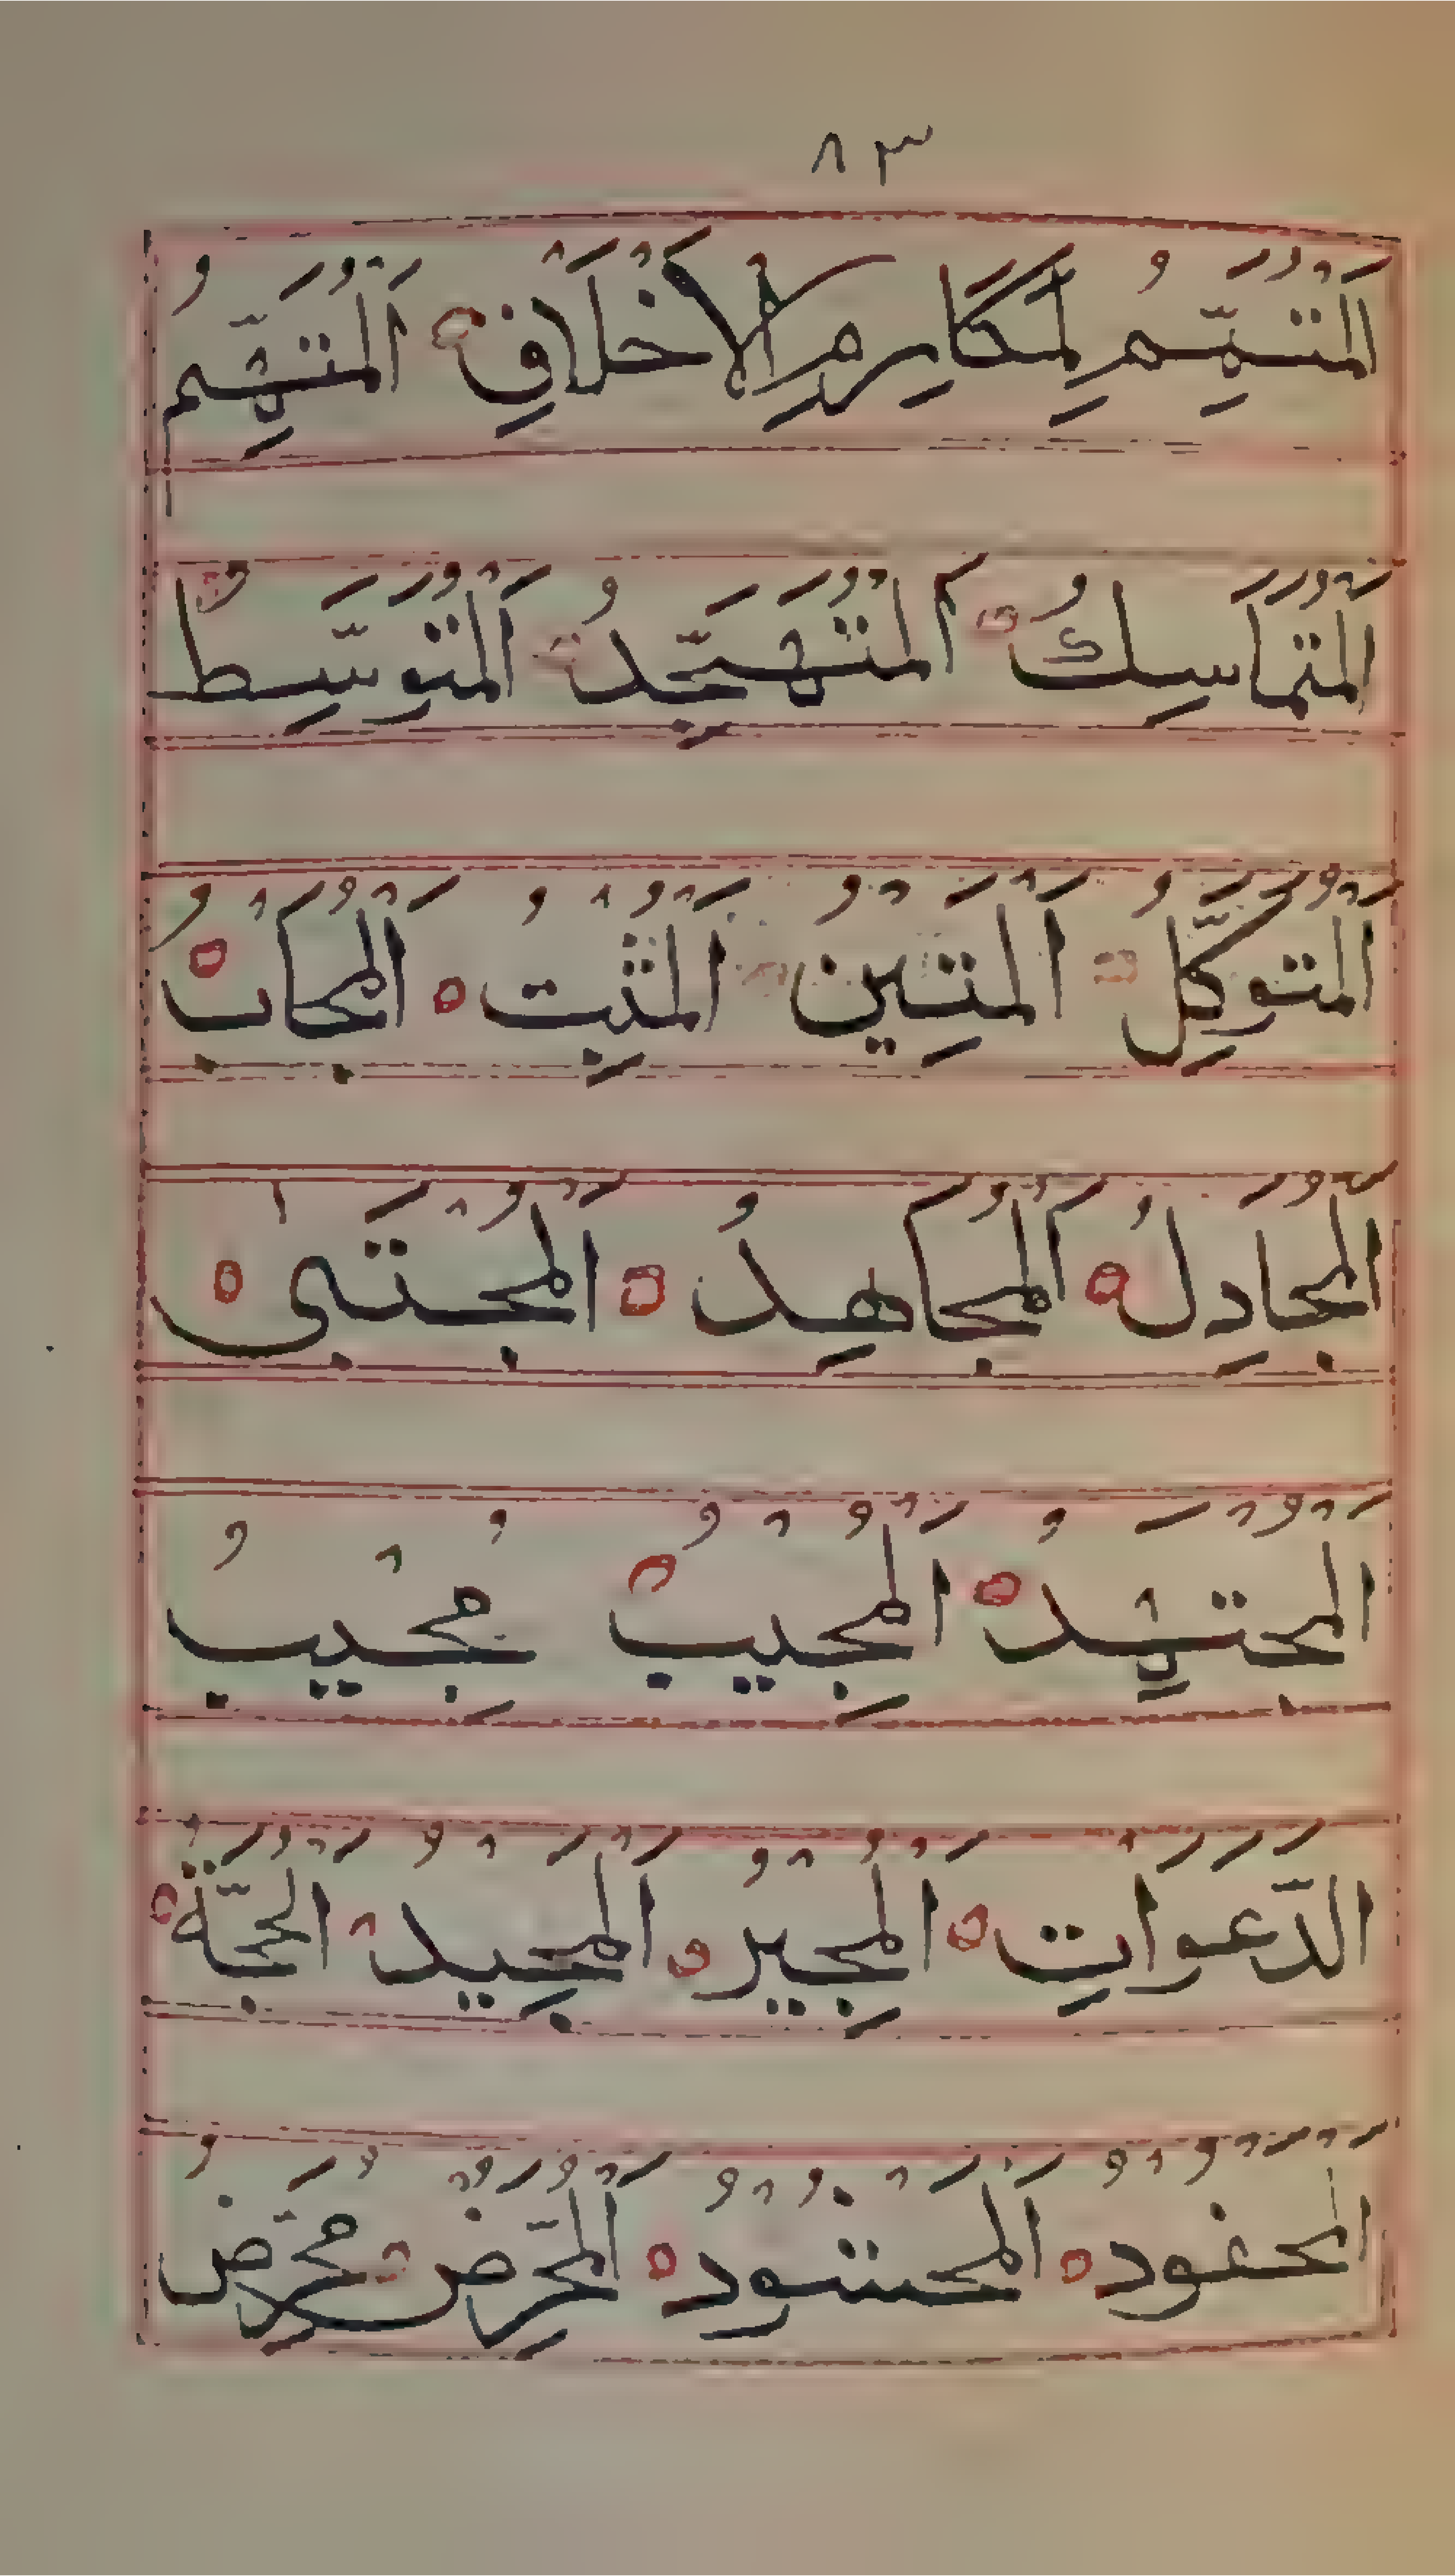 ٨٣
اَلْمُتَمِّمُ لِمَكَارِمِ الْاَخْلَاقِ اَلْمُتَهِّمُ
اَلْمُتَمَاسِكُ اَلْمُتَهَجِّدُ اَلْمُتَوَسِّطُ
اَلْمُتَوَكِّلُ اَلْمَتِينُ اَلْمُثْبِتُ اَلْمُجَابُ
اَلْمُجَادِلُ اَلْمُجَاهِدُ اَلْمُجْتَبٰى
اَلْمُجْتَهِدُ اَلْمُجِيبُ مُجِيبُ
الدَّعَوَاتِ اَلْمُجِيرُ اَلْمَجِيدُ اَلْحُجَّةُ
اَلْمَحْفُودُ اَلْمَحْشُودُ اَلْمُحَرِّضُ مُحَرِّضُ